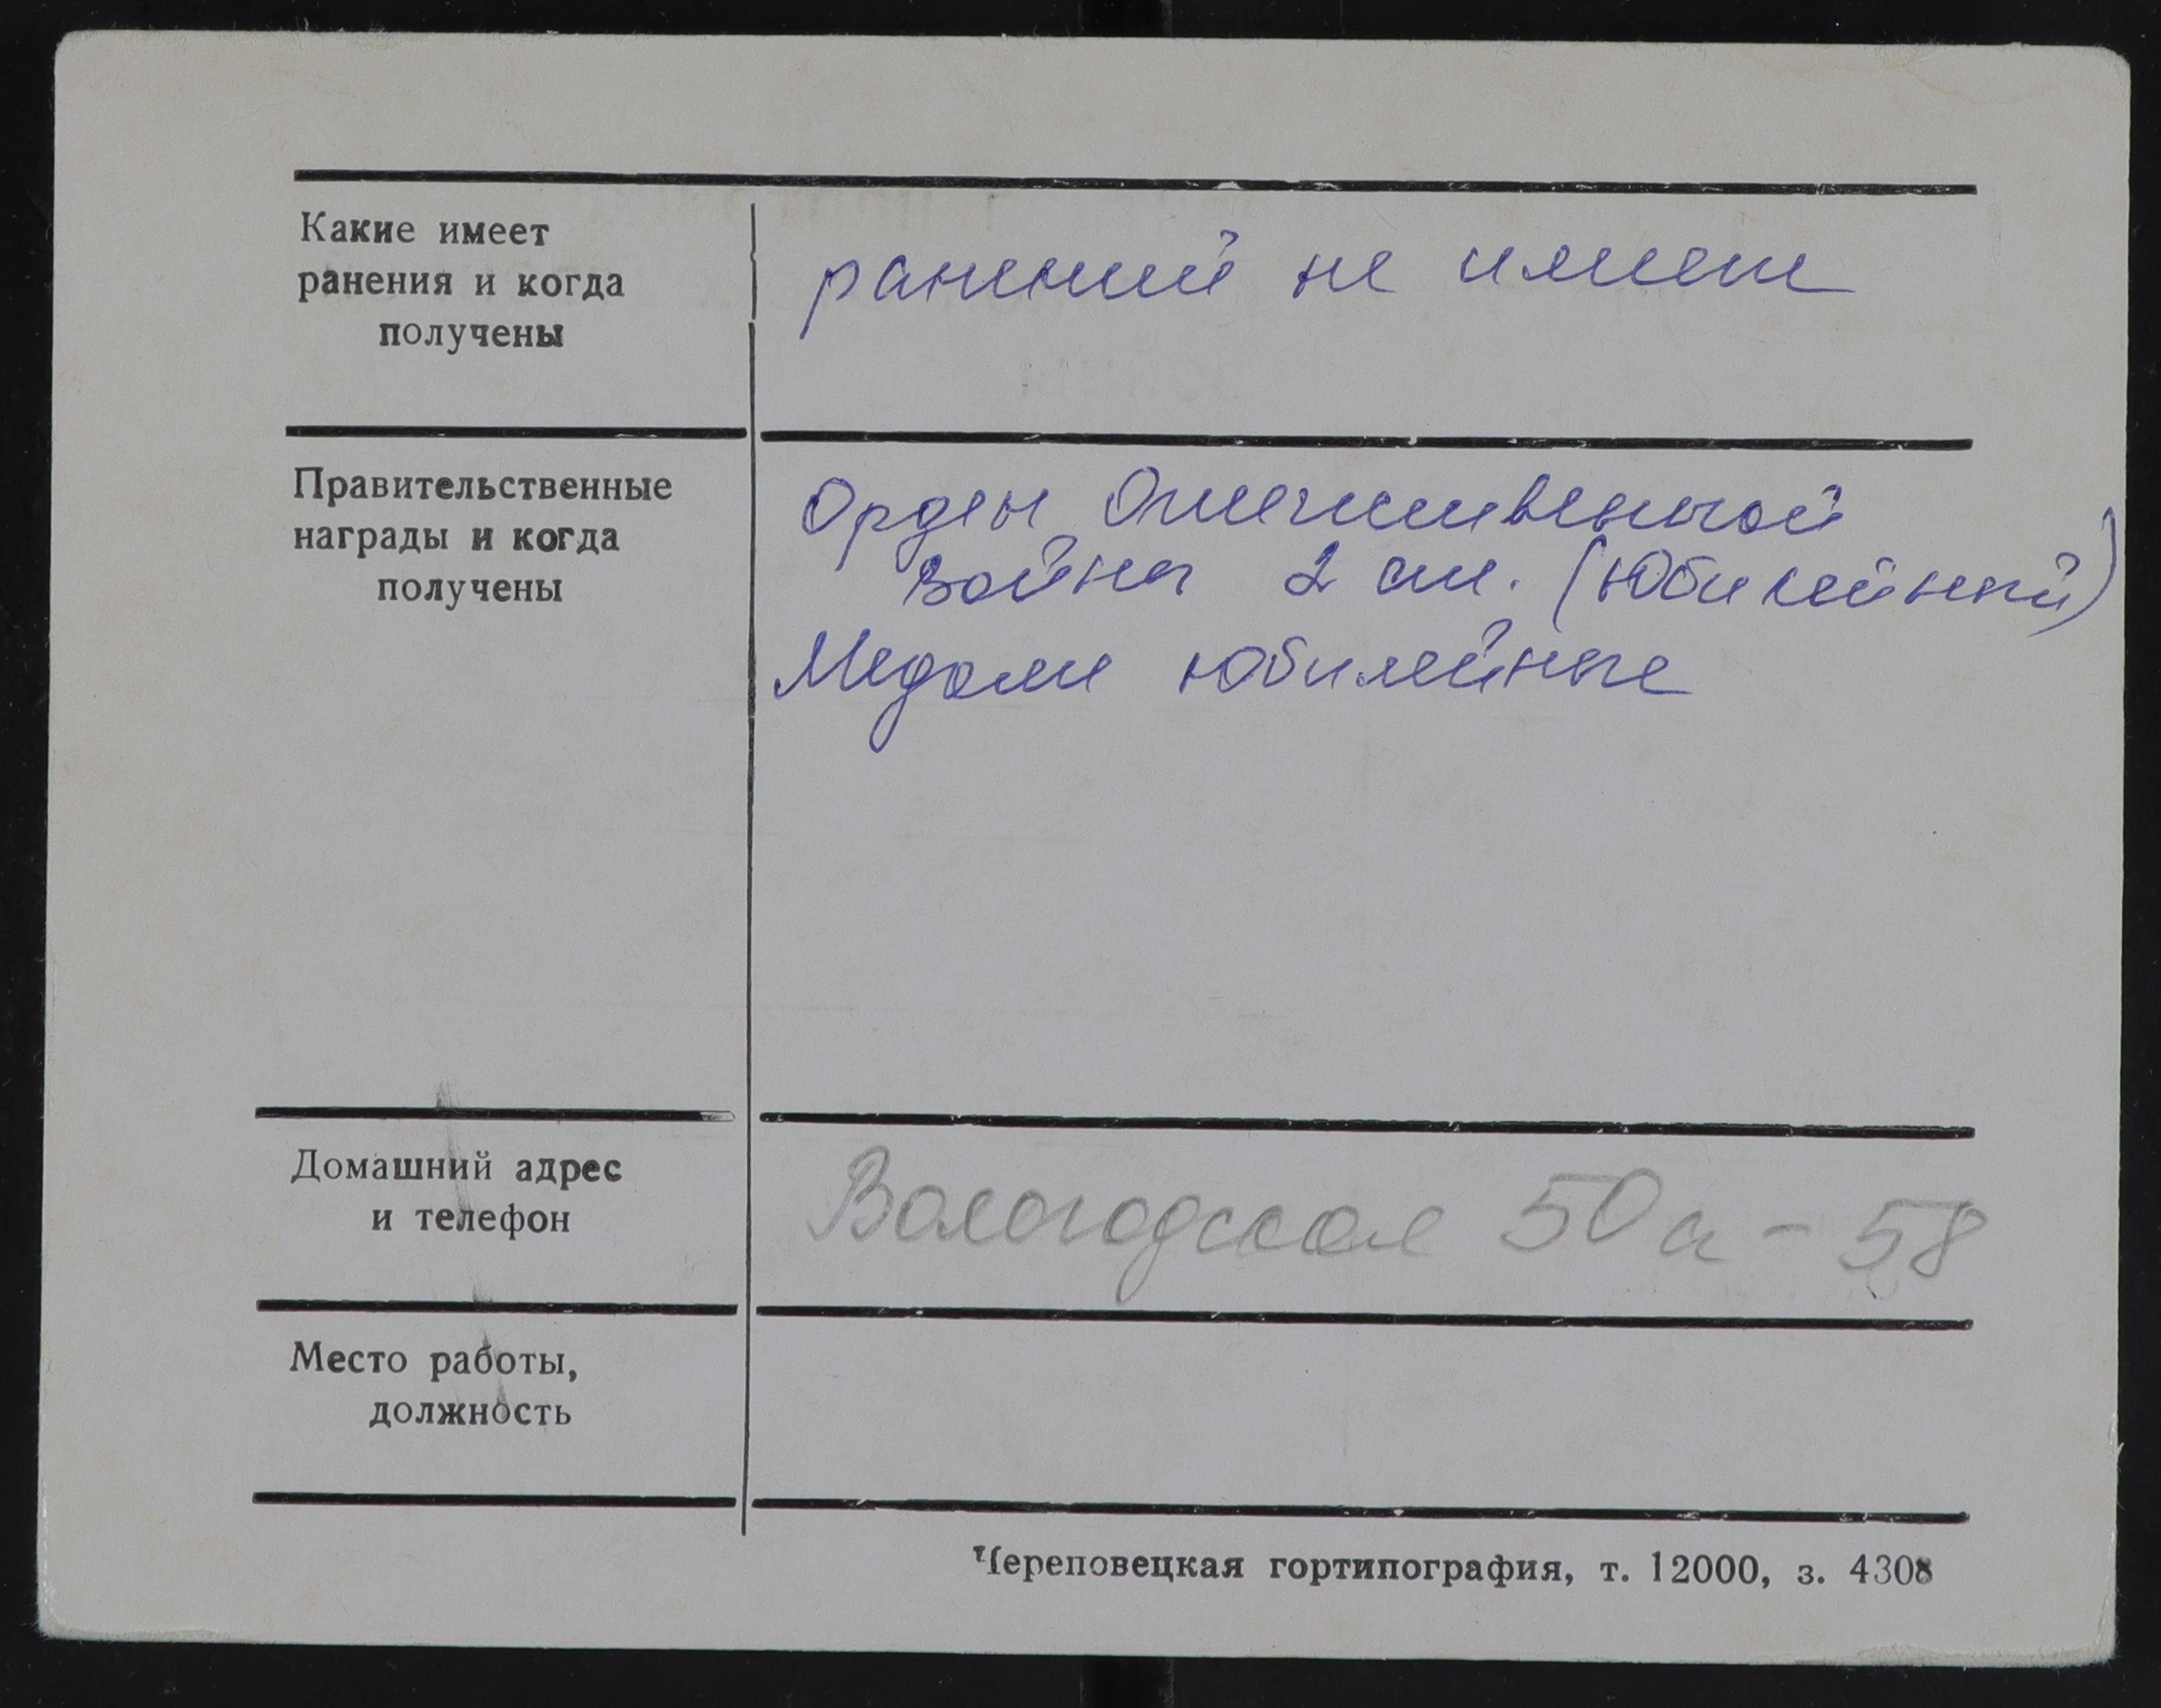 Какие имеет
ранения и когда
получены
ранений не имеет
Правительственные
награды и когда
получены
Орден Отечественной
войны 2 ст. (Юбилейный)
Медали юбилейные
Домашний адрес
и телефон
Вологодская 50а - 58
Место работы,
должность
Череповецкая гортипография, т. 12000, з. 4308